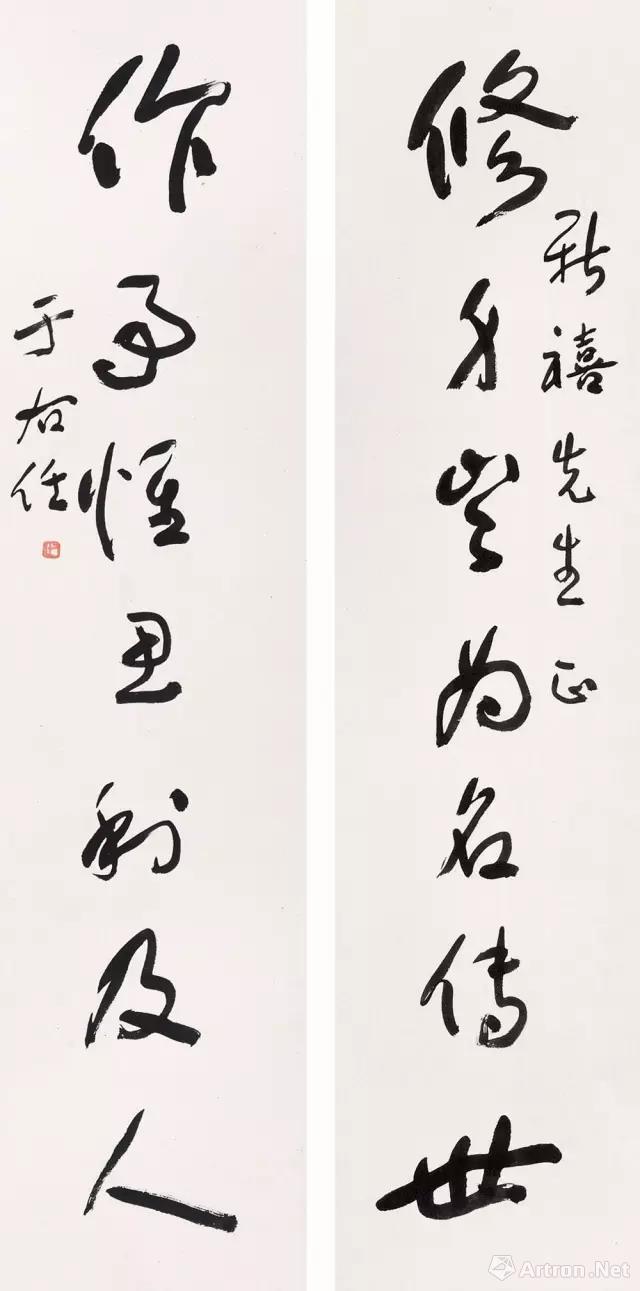 修身豈為名傳世
新禧先生正
作事惟思利及人
于右任
Artron.Net